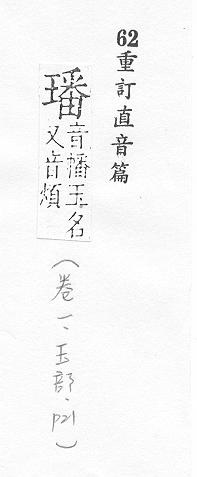 62重訂直音篇
璠
音旛玉名
又音煩
(卷一、玉部、P21)